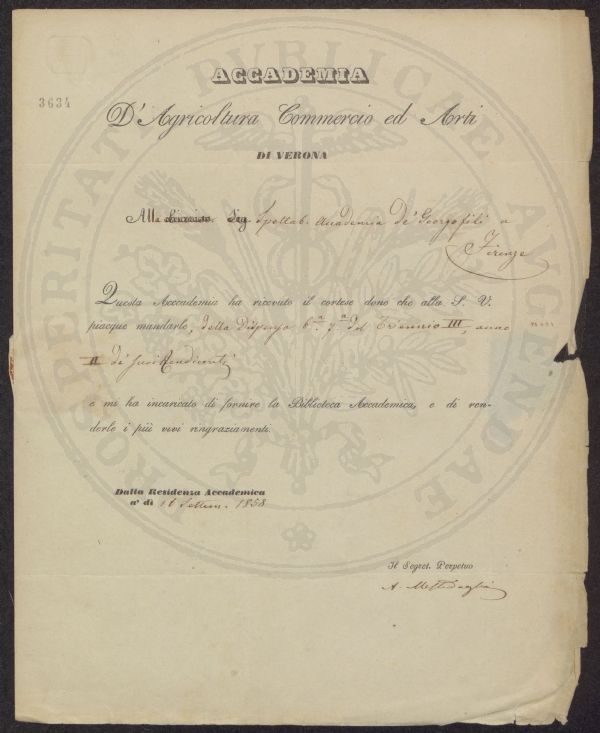 ACCADEMIA
3634
D'Agricoltura Commercio ed Arti
DI VERONA
Alla Sig. Spettab. Accademia de' Georgofili a
Firenze
Questa Accademia ha ricevuto il cortese dono che alla S. V.
piacque mandarle, della Dispensa 6.a 7.a del Triennio III, anno
II de' suoi Rendiconti
e mi ha incaricato di fornire la Biblioteca Accademica, e di ren-
derle i più vivi ringraziamenti.
Dalla Residenza Accademica
a' dì 16 Settem. 1858
Il Segret. Perpetuo
A.
PROSPERITATI PUBLICAE AUGENDAE